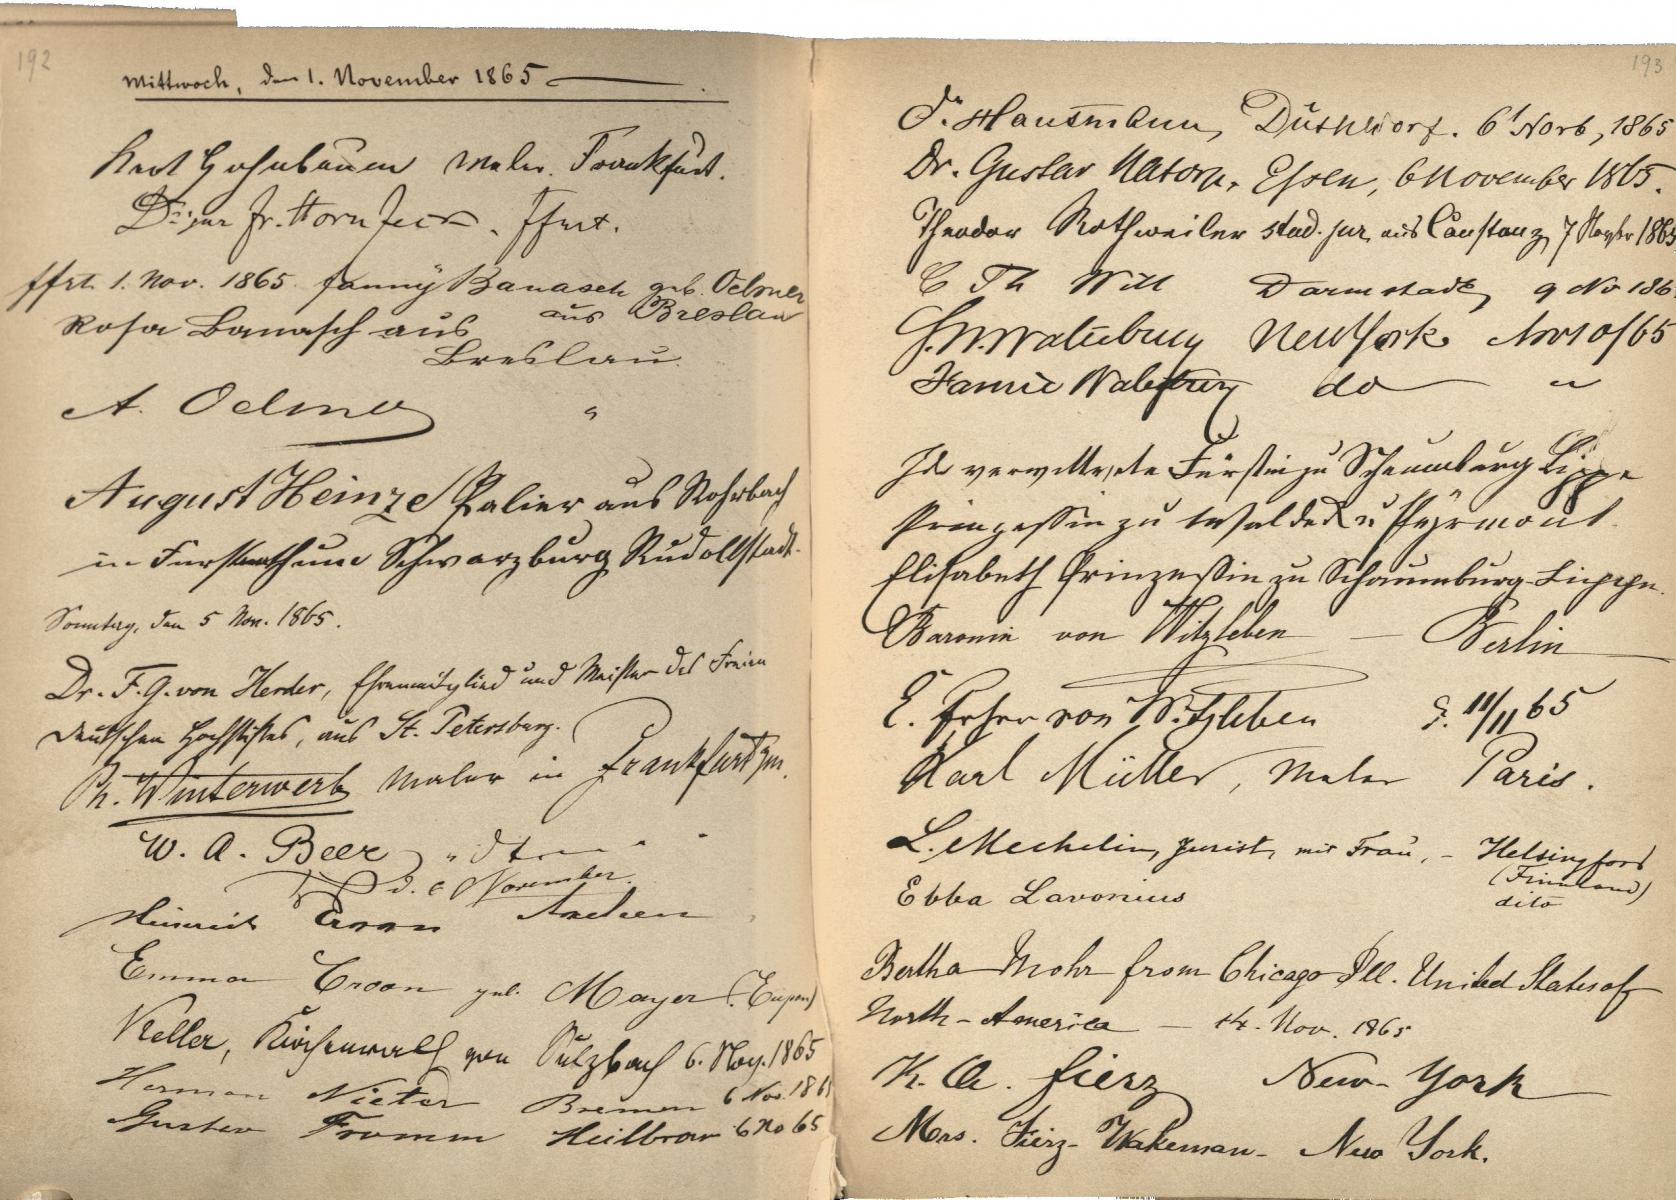 192
Mittwoch, den 1. November 1865
Maler. Frankfurt.
Dr. jur. Fr. Hornfeck. Ffurt.
ffrt. 1. Nov. 1865. Fanny Banasch geb. Oelsner
aus Breslau
Rosa Banasch aus
Breslau.
A. Oelsner "
August Heinze Palier aus Rohrbach
in Fürstenthum Schwarzburg Rudollstadt.
Sonntag, den 5 Nov. 1865.
Dr. F. G. von Herder, Ehrenmitglied und Meister des Freien
deutschen Hochstiftes, aus St. Petersburg.
Ph. Winterwerb Maler in Frankfurt a/m.
W. A. Beer
d. 6 November.
Heinrich Croon Aachen
Emma Croon geb. Mayer (Eupen)
Keller, von Sulzbach 6. Nov. 1865
Herman Nieter Bremen 6 Nov. 1865
Gustav Fromm Heilbron 6 No 65
193
Dr. Hausmann, Düsseldorf. 6t Novb, 1865
Dr. Gustav Natorp, Essen, 6 November 1865.
Theodor Rothweiler stud. jur. aus Constanz, 7 Novbr 1865
C Th Will Darmstadt, 9 No 186
New York Nov 10/65
do "
verwittwete Fürstin zu Schaumburg Lippe
Prinzessin zu Waldeck u Pyrmont.
Elisabeth Prinzessin zu Schaumburg-Lippe.
Baronin von Witzleben — Berlin
E. Frhr von Witzleben 11/11 65
Karl Müller, Maler Paris.
L. Mechelin, Jurist, mit Frau, - Helsingfors
(Finnland)
Ebba Lavonius dito
Bertha Mohr from Chicago Ill. United States of
North-America — 14. Nov. 1865
K. A. Fierz New-York
Mrs. Fierz-Wakeman - New York.